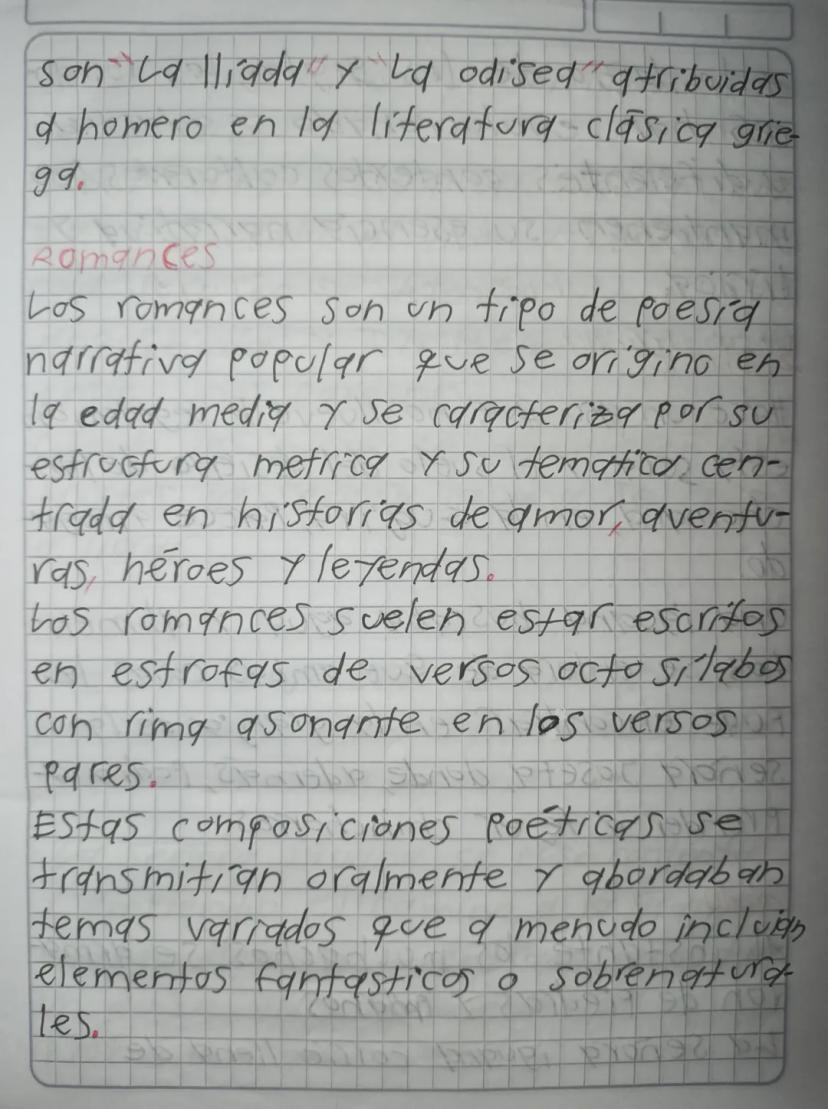 son "La Ilíada" y "La odisea" atribuidas
a homero en la literatura clásica grie-
ga.
Romances
Los romances son un tipo de poesía
narrativa popular que se origino en
la edad media y se caracteriza por su
estructura metrica y su tematica cen-
trada en historias de amor, aventu-
ras, héroes y leyendas.
Los romances suelen estar escritos
en estrofas de versos octosílabos
con rima asonante en los versos
pares.
Estas composiciones poéticas se
transmitían oralmente y abordaban
temas variados que a menudo incluian
elementos fantasticos o sobrenatura-
les.